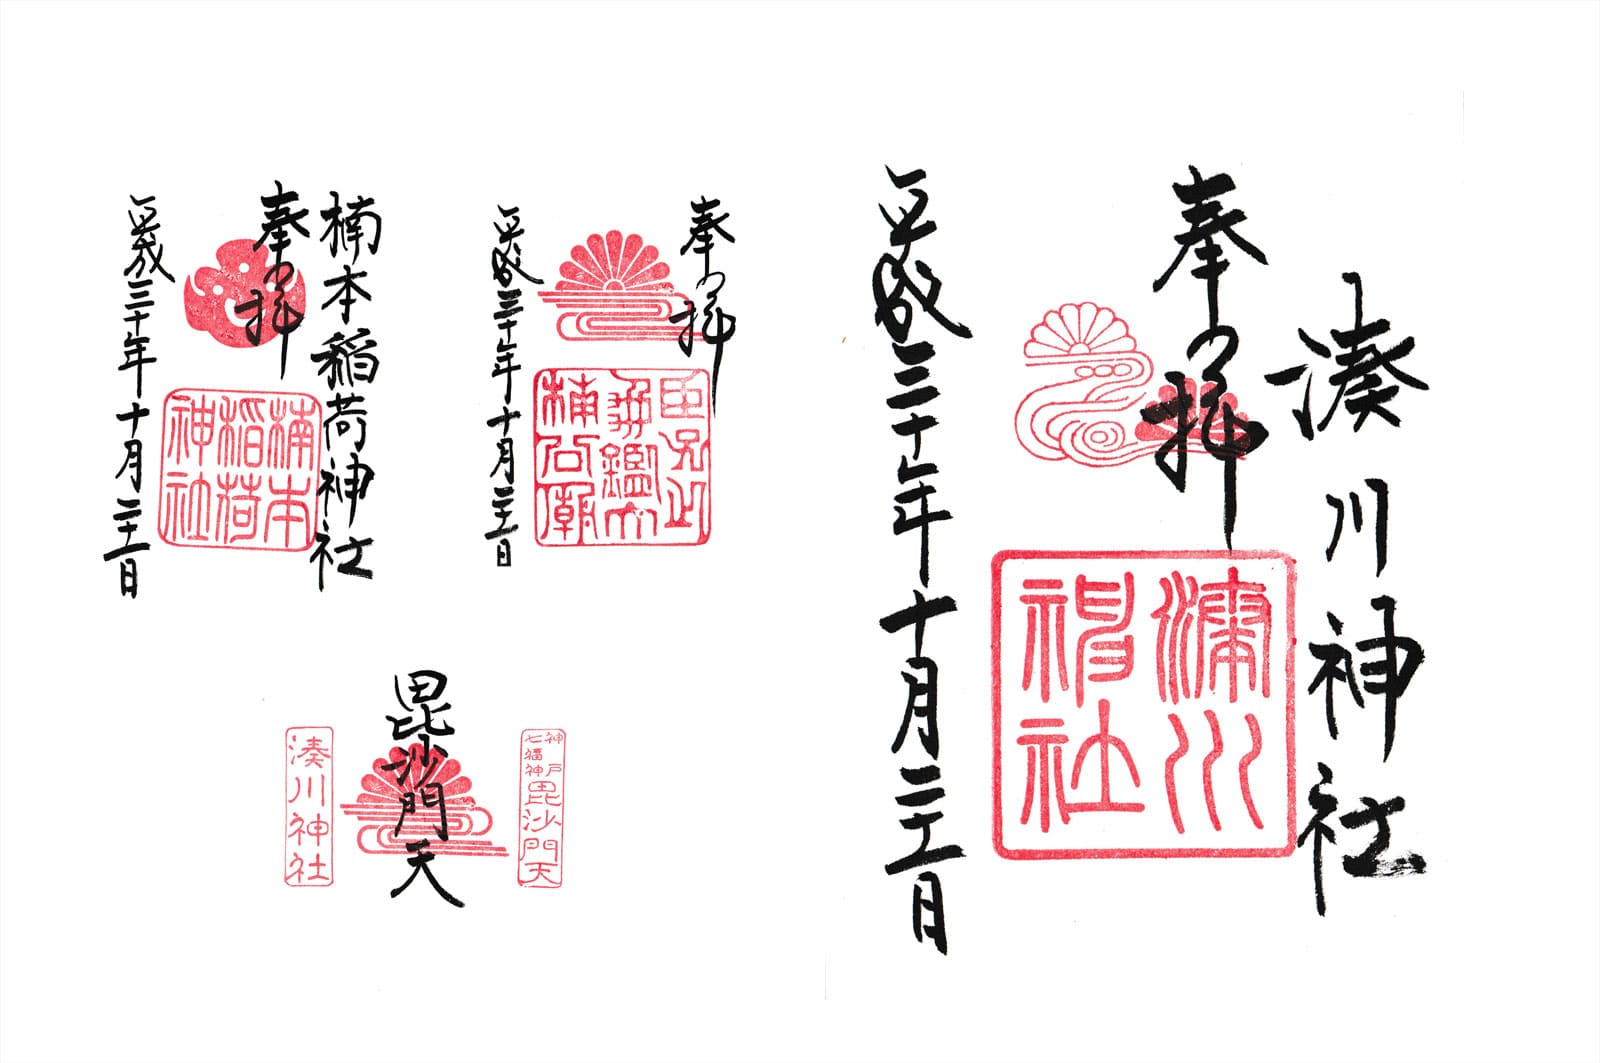 楠本稲荷神社
奉拝
平成三十年十月二十一日
楠本
稲荷
神社
奉拝
平成三十年十月二十一日
神戸
七福神
毘沙門天
毘沙門天
湊川神社
湊川神社
奉拝
平成三十年十月二十一日
湊川
神社